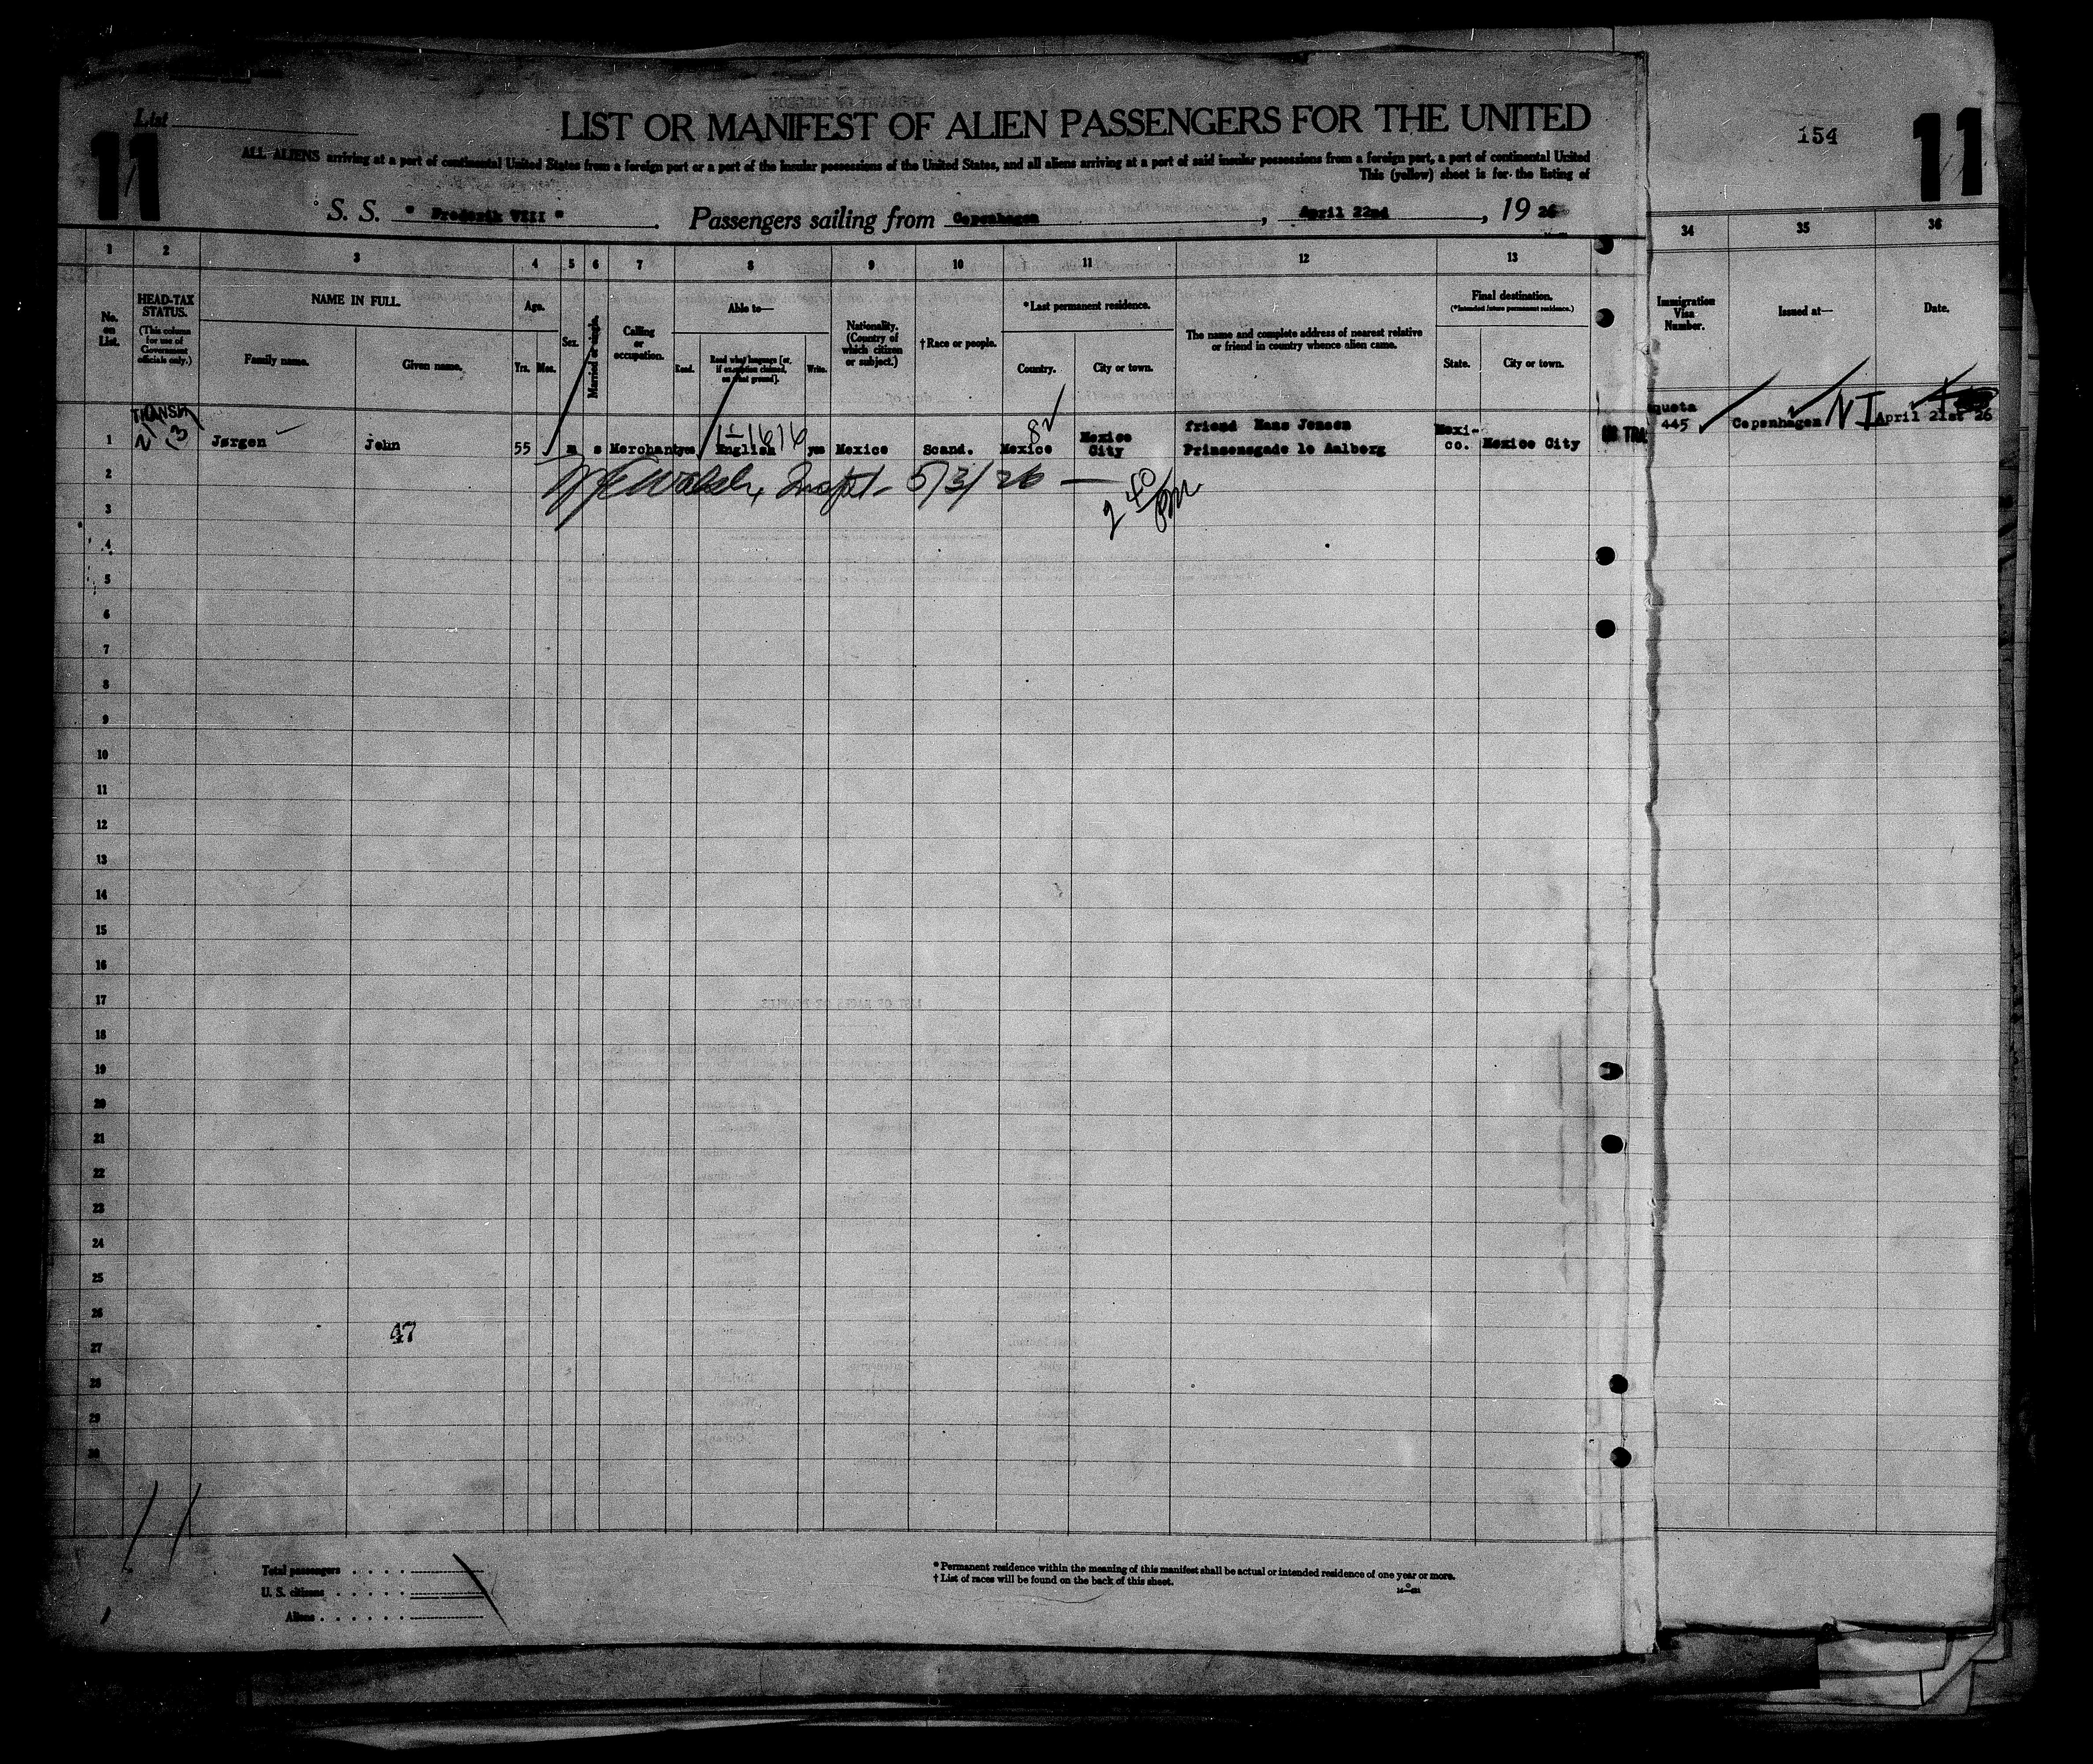 List
LIST OR MANIFEST OF ALIEN PASSENGERS FOR THE UNITED
11
154
11
ALL ALIENS arriving at a port of continental United States from a foreign port or a port of the insular possessions of the United States, and all aliens arriving at a port of said insular possessions from a foreign port, a port of continental United
This (yellow) sheet is for the listing of
S. S. " Frederik VIII " Passengers sailing from Copenhagen, April 22nd, 19 26
1 2 3 4 5 6 7 8 9 10 11 12 13 34 35 36
No. on List.
HEAD-TAX STATUS.
(This column for use of Government officials only.)
NAME IN FULL.
Family name.
Given name.
Age.
Yrs. Mos.
Sex.
Married or single.
Calling or occupation.
Able to—
Read.
Read what language [or, if exemption claimed, on what ground].
Write.
Nationality. (Country of which citizen or subject.)
†Race or people.
*Last permanent residence.
Country.
City or town.
The name and complete address of nearest relative or friend in country whence alien came.
Final destination.
(*Intended future permanent residence.)
State.
City or town.
Immigration Visa Number.
Issued at—
Date.
TRANSIT
1 Jørgen John 55 m s Merchant yes English yes Mexico Scand. Mexico Mexico City friend Hans Jensen Prinsensgade 1o Aalborg Mexi-co. Mexico City 445 Copenhagen NI April 21st 26
8
5/3/26 —
2 40 PM
2
3
4
5
6
7
8
9
10
11
12
13
14
15
16
17
18
19
20
21
22
23
24
25
26
47
27
28
29
30
11
Total passengers
U. S. citizens
Aliens
*Permanent residence within the meaning of this manifest shall be actual or intended residence of one year or more.
†List of races will be found on the back of this sheet.